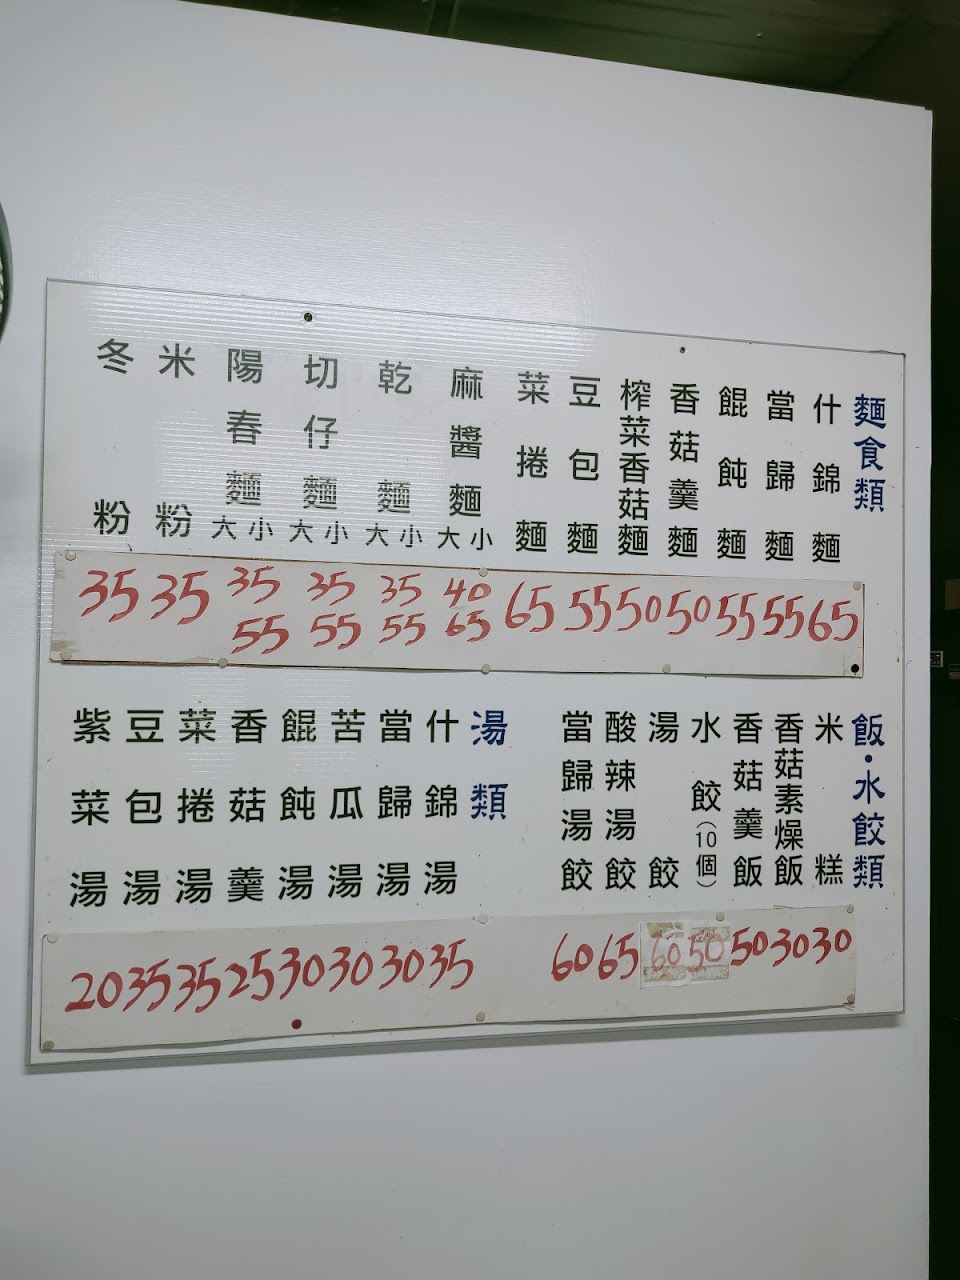 麵食類
什錦麵 65
當歸麵 55
餛飩麵 55
香菇羹麵 50
榨菜香菇麵 50
豆包麵 55
菜捲麵 65
麻醬麵 大 小 40 65
乾麵 大 小 35 55
切仔麵 大 小 35 55
陽春麵 大 小 35 55
米粉 35
冬粉 35
飯·水餃類
米糕 30
香菇素燥飯 30
香菇羹飯 50
水餃(10個) 50
湯餃 60
酸辣湯餃 65
當歸湯餃 60
湯類
什錦湯 35
當歸湯 30
苦瓜湯 30
餛飩湯 30
香菇羹 25
菜捲湯 35
豆包湯 35
紫菜湯 20